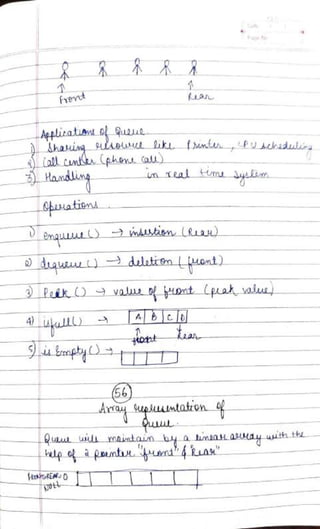 Front Rear
Applications of Queue
1) Sharing resource like Printer, CPU scheduling
2) Call center (phone call)
3) Handling in real time system
Operations
1) enqueue () → insertion (Rear)
2) dequeue () → deletion (front)
3) Peak () → value of front (peak value)
4) isfull() → A B C D
front Rear
5) is Empty () →
56
Array representation of
Queue
Queue will maintain by a linear array with the
help of 2 pointer "front" & "Rear"
NULL